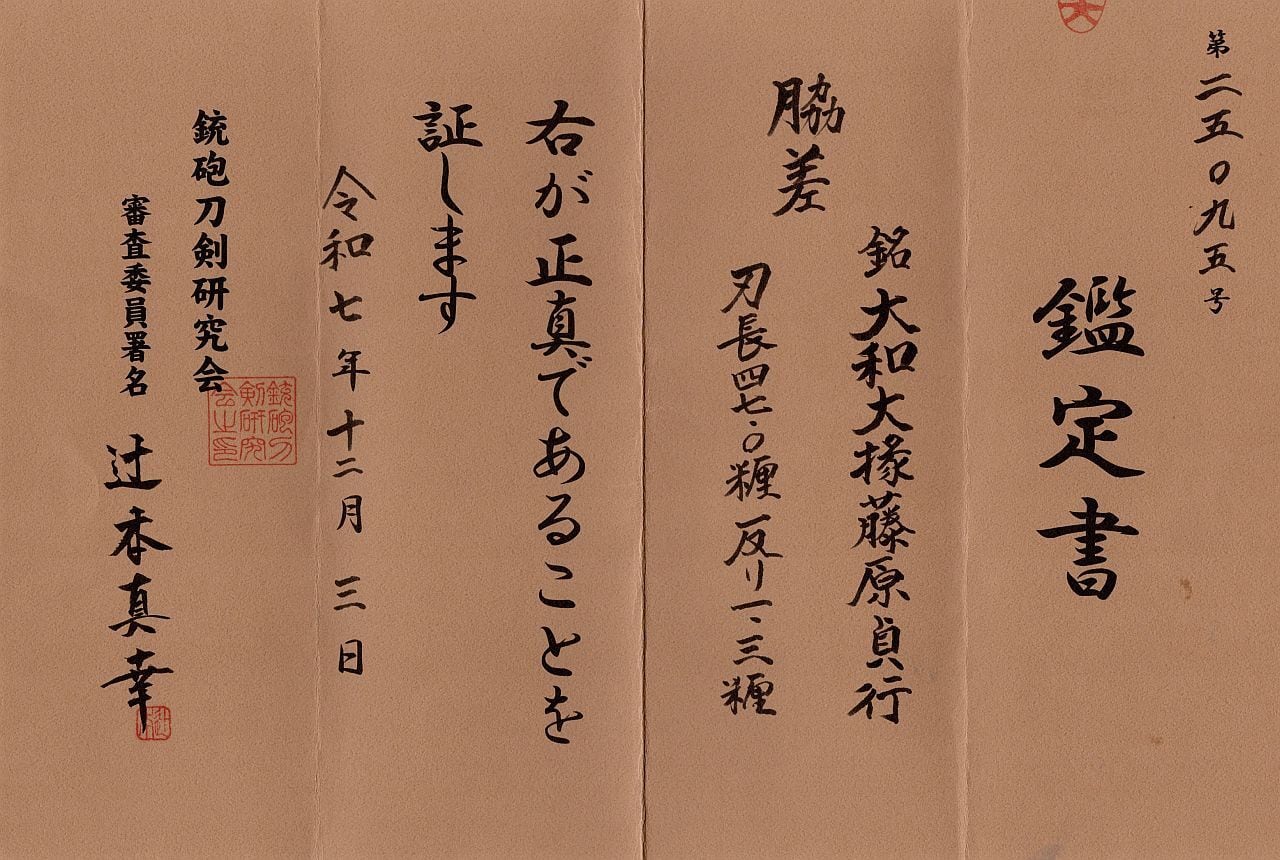 第二五〇九五号
鑑定書
脇差
銘 大和大掾藤原貞行
刃長四七・〇糎 反り一・三糎
右が正真であることを
証します
令和七年十二月三日
銃砲刀剣研究会
審査委員署名 辻本真幸
銃砲刀
剣研究
会之印